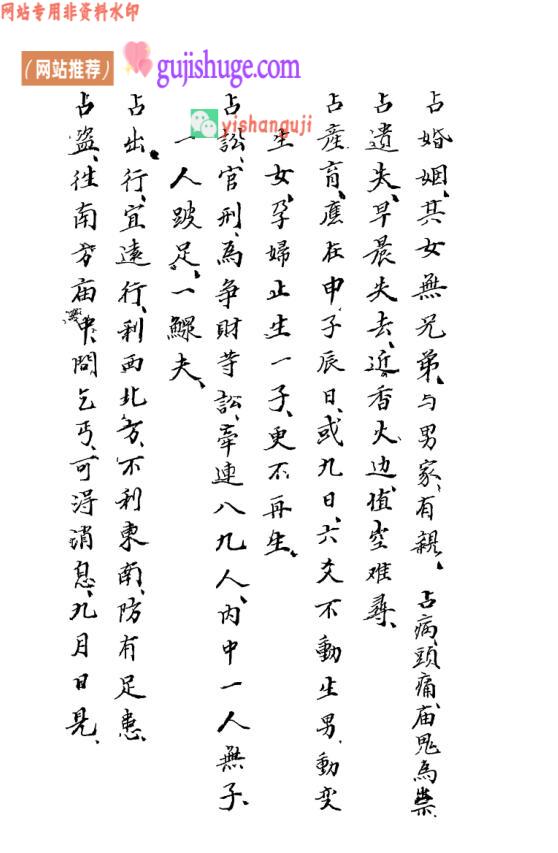 网站专用非资料水印
（网站推荐）
gujishuge.com
yishanguji
占婚姻、其女無兄弟、与男家、有親、　占病、頭痛、庙鬼為祟
占遺失、早晨失去、近香火边、值空难尋、
占產育、應在申子辰日、或九日、六爻不動生男、動变
生女、孕婦止生一子、更不再生、
占訟、官刑、為争財等訟、牽連八九人、內中一人無子、
一人跛足、一鰥夫、
占出行、宜遠行、利西北方、不利東南、防有足患、
占盗、往南方庙中、問乞丐、可淂消息、九月日見、